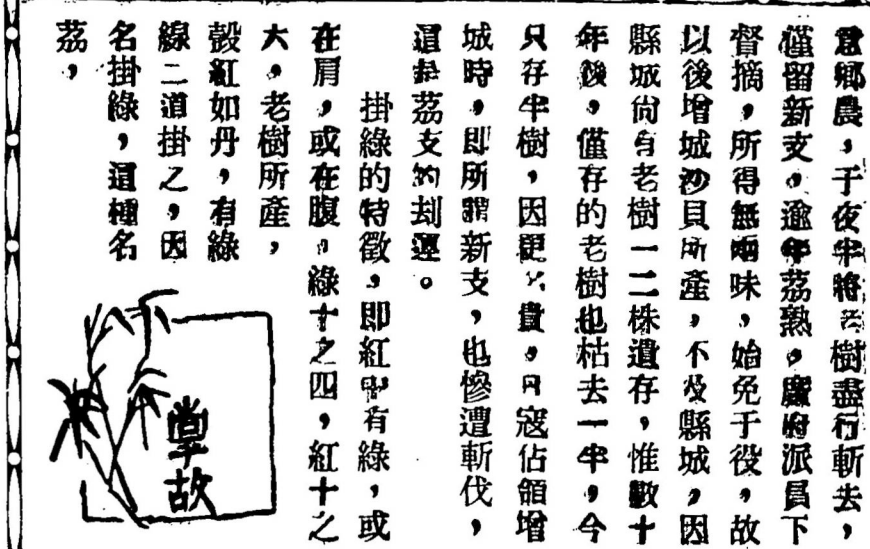 鄉農，于夜半將老樹盡行斬去，
僅留新支。逾年荔熟，廣府派員下
督摘，所得無兩味，始免于役，故
以後增城沙貝所產，不及縣城，因
縣城尚有老樹一二株遺存，惟數十
年後，僅存的老樹也枯去一半，今
只存半樹，因更貴，寇佔領增
城時，即所謂新支，也慘遭斬伐，
這荔支的刦運。
掛綠的特徵，即紅中有綠，或
在肩，或在腹。綠十之四，紅十之
六，老樹所產，
殼紅如丹，有綠
線二道掛之，因
名掛綠，這種名
荔，
掌故